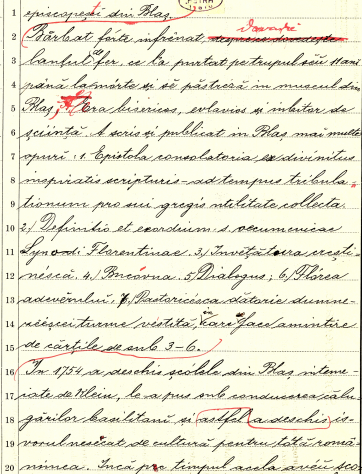 1 episcopesci din Blaș.
2 Bărbat fórte înfrînat, Dovadă
3 lanțul fer, ce la purtat pe trupul său 11 ani
4 până la mórte și se păstreză în museul din
5 Blaș. Era bisericos, evlavios și iubitor de
6 sciință. A scris și publicat în Blaș mai multe
7 opuri: 1. Epistola consolatoria ex divinitus
8 inspiratis scripturis - ad tempus tribula-
9 tionum pro sui gregis utilitate collecta.
10 2.) Definitio et exordium s. oecumenicae
11 Synodi Florentinae. 3.) Învețătura crești-
12 néscă. 4.) Bucóvna. 5.) Dialogus; 6.) Flórea
13 adevĕrului. 7.) Pastoricésca dătorie dumne-
14 zeieșcei turme vestită, care face amintire
15 de cărțile de sub 3-6.
16 In 1754 a deschis școlele din Blaș înteme-
17 iate de Klein, le a pus sub conducerea călu-
18 gărilor basilitani și astfel a deschis is-
19 vorul nesecat de cultură pentru tótă romă-
20 nimea. Incă pe timpul acela aveu șco